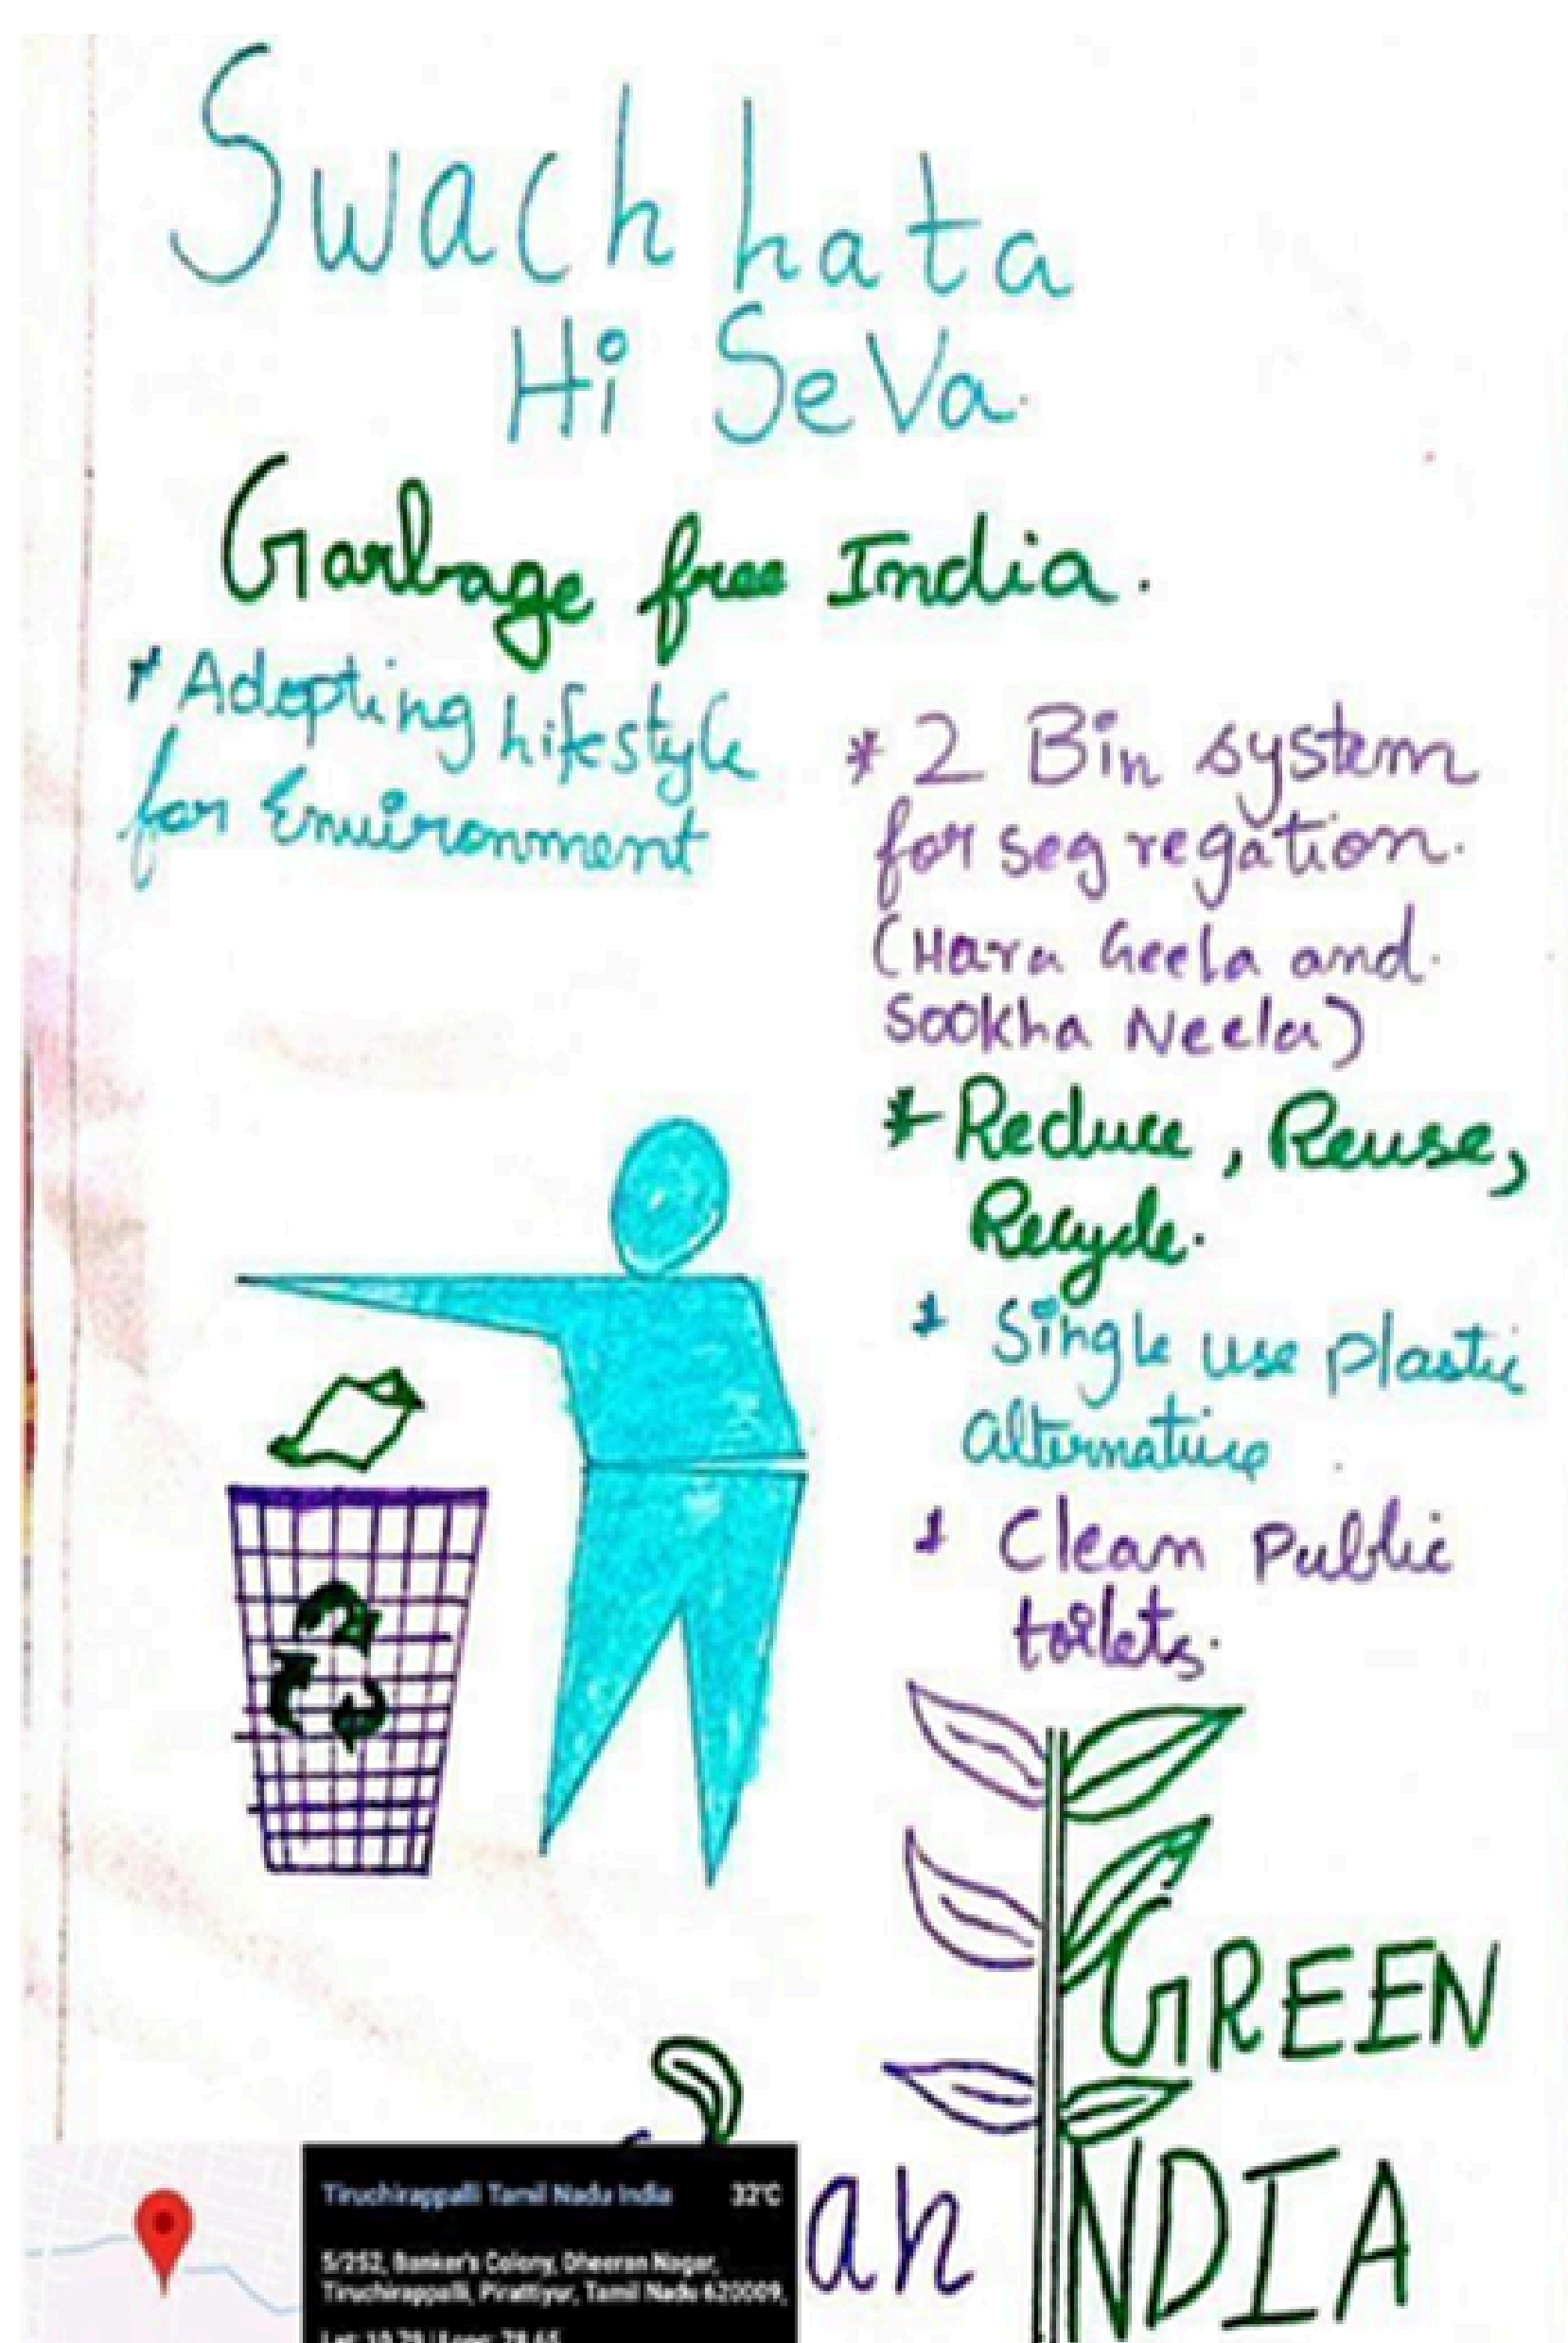 Swachhata
Hi Seva.
Garbage free India.
* Adopting Lifestyle
for Environment
* 2 Bin system
for segregation.
(Hara Geela and
Sookha Neela)
* Reduce, Reuse,
Recycle.
* Single use plastic
alternative
* Clean Public
toilets.
GREEN
an INDIA
Tiruchirappalli Tamil Nadu India 32°C
5/252, Banker's Colony, Dheeran Nagar,
Tiruchirappalli, Pirattiyur, Tamil Nadu 620009,